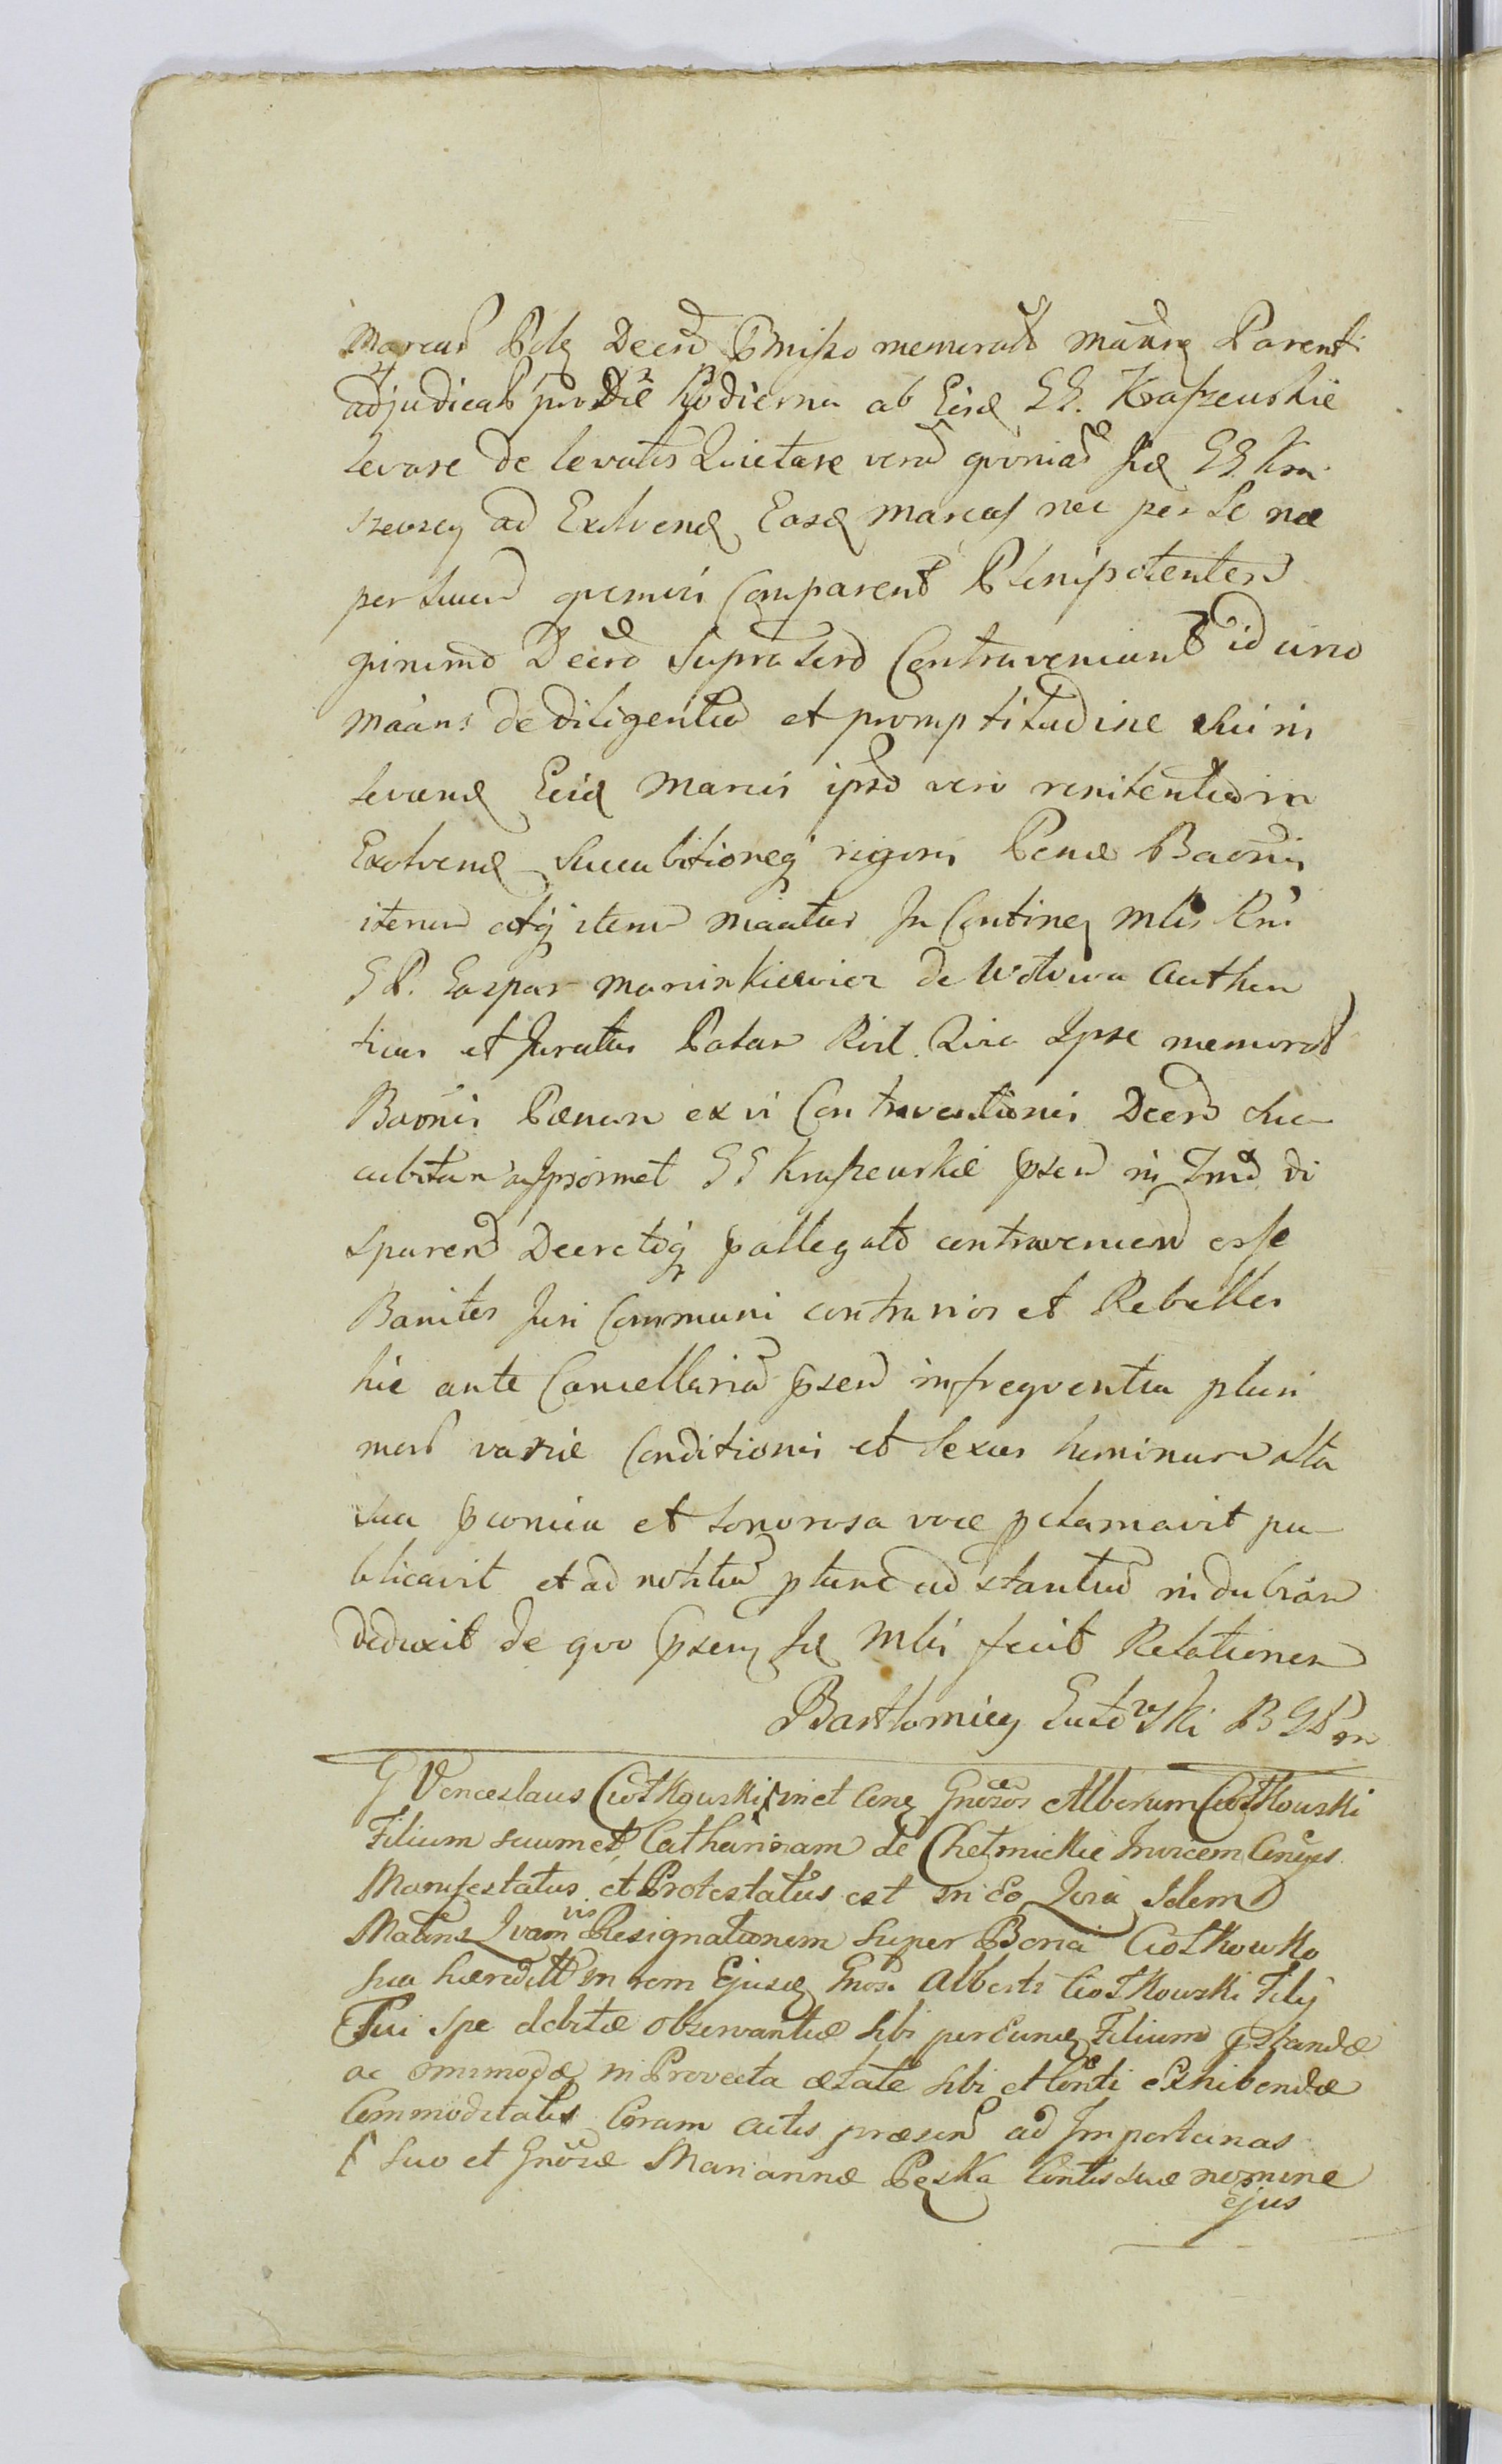 Marcas Pols Decro Pmisso memorat mañte Parenti
adjudicat pro Die hodierna ab Eisd GG. Kraszewskie
levare de levatis Quietare vero quoniam Jid GG. Kra
szewscy ad Exolvend Easd Marcas nec per Se nec
per Suum quemvis Comparent Plenipotentem
quinimo Decro Supra Contraveniunt id circo
maãns de diligentia et promptitudine sui in
levand Eisd Marcis ipso vero renitentia in
Exolvend Succubitioneq rigoris Penæ Baõnis
iterum atq iterum maãtur In Continen Mtis Rni
G P. Gaspar Marcinkiewicz de Wolowa Authen
ticus et Juratus Palam Quia Ipse memorat
Baõnis Pænam ex vi Contraventionis Decro suc
cubitam Ipsosmet GG Kraszewskie psen in Tmo di
sparend Decretoq pallegato contravenien esse
Banitos Juri Communi contrarios et Rebelles
hic ante Cancellariam psen in frequentia pluri
mor variæ Conditionis et Sexus hominum alta
sua pconica et sonorosa voce pclamavit pu
blicavit et ad notitiam ptunc adstantium indubiam
deduxit de quo psen Jd Mtri fecit Relationem
Bartłomiey Gutowski B G P m
G Venceslaus Ciołkowski met Cong Gnõsos Albertum Ciołkowski
Filium suum et Catharinam de Chełmickie Invicem Cõnjges
Manifestatus et Protestatus est in Eo Quia Idem
Maãns Quamvis Resignationem super Bona Ciołkowko
sua hæredit in rem Ejusd Gnosi Alberti Ciołkowski Filij
Sui spe debitæ observantiæ sibi per Eund Filium pstandæ
ac omnimodæ in Provecta ætate sibi et Conti Exhibendæ
Commoditatis Coram actis præsen ad Importunas
[ suo et Gnõsæ Mariannæ Pęska Contis suæ nomine
ejus